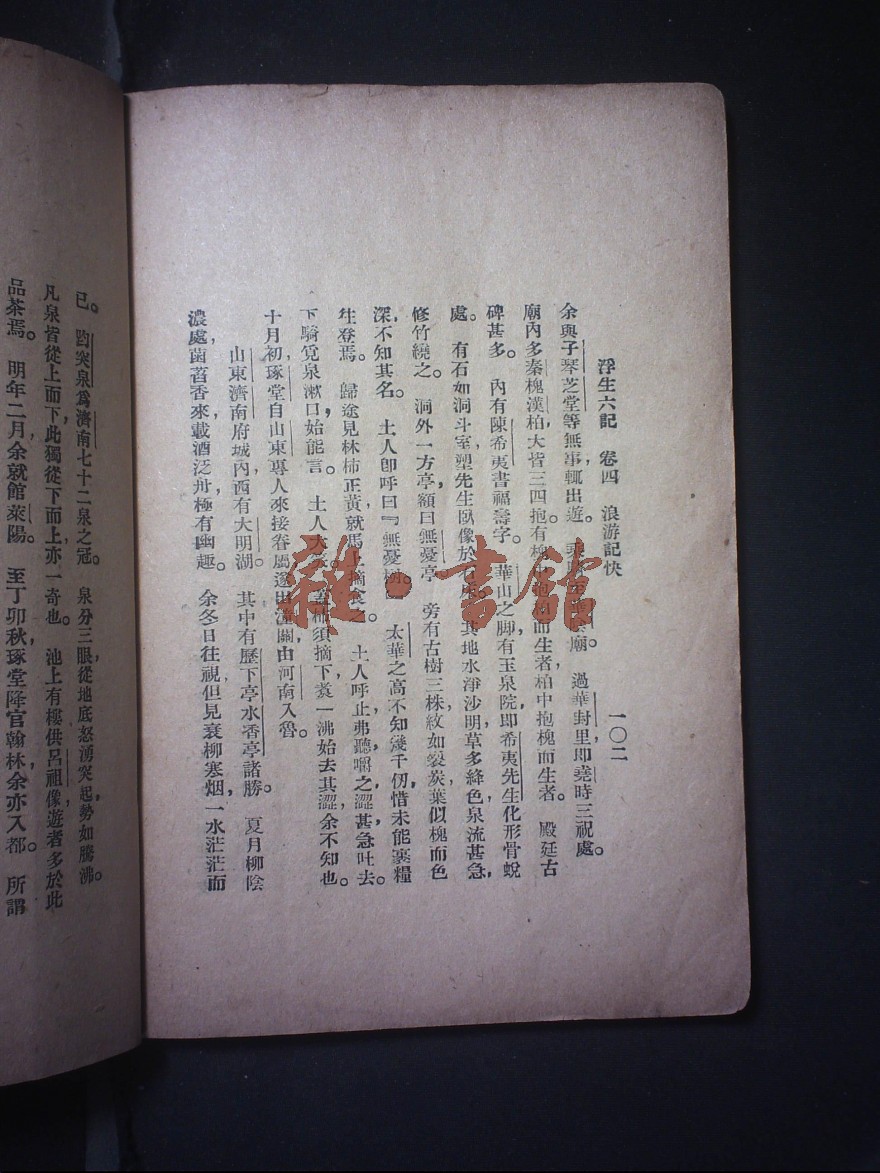 浮生六記　卷四　浪游記快　一〇二
余與子琴芝堂等無事輒出遊。至廟。過華封里，卽堯時三祝處。
廟內多秦槐漢柏，大皆三四抱，有槐中抱柏而生者，柏中抱槐而生者。殿廷古
碑甚多。內有陳希夷書福壽字。華山之脚有玉泉院，卽希夷先生化形骨蛻
處。有石如洞斗室，塑先生臥像於石床。其地水淨沙明，草多絳色，泉流甚急，
修竹繞之。洞外一方亭，額曰無憂亭。旁有古樹三株，紋如裂炭，葉似槐而色
深，不知其名。土人卽呼曰『無憂樹』。太華之高不知幾千仞，惜未能裹糧
往登焉。歸途見林柿正黃，就馬上摘食之。土人呼止弗聽，嚼之，澀甚，急吐去。
下騎覓泉漱口，始能言。土人大笑。蓋柿須摘下煑一沸，始去其澀，余不知也。
十月初，琢堂自山東專人來接眷屬，遂出潼關，由河南入魯。
山東濟南府城內，西有大明湖。其中有歷下亭水香亭諸勝。夏月柳陰
濃處，菡萏香來，載酒泛舟，極有幽趣。余冬日往視，但見衰柳寒烟，一水茫茫而
已。趵突泉爲濟南七十二泉之冠。泉分三眼，從地底怒湧突起，勢如騰沸。
凡泉皆從上而下，此獨從下而上，亦一奇也。池上有樓，供呂祖像，遊者多於此
品茶焉。明年二月，余就館萊陽。至丁卯秋，琢堂降官翰林，余亦入都。所謂
雜·書館